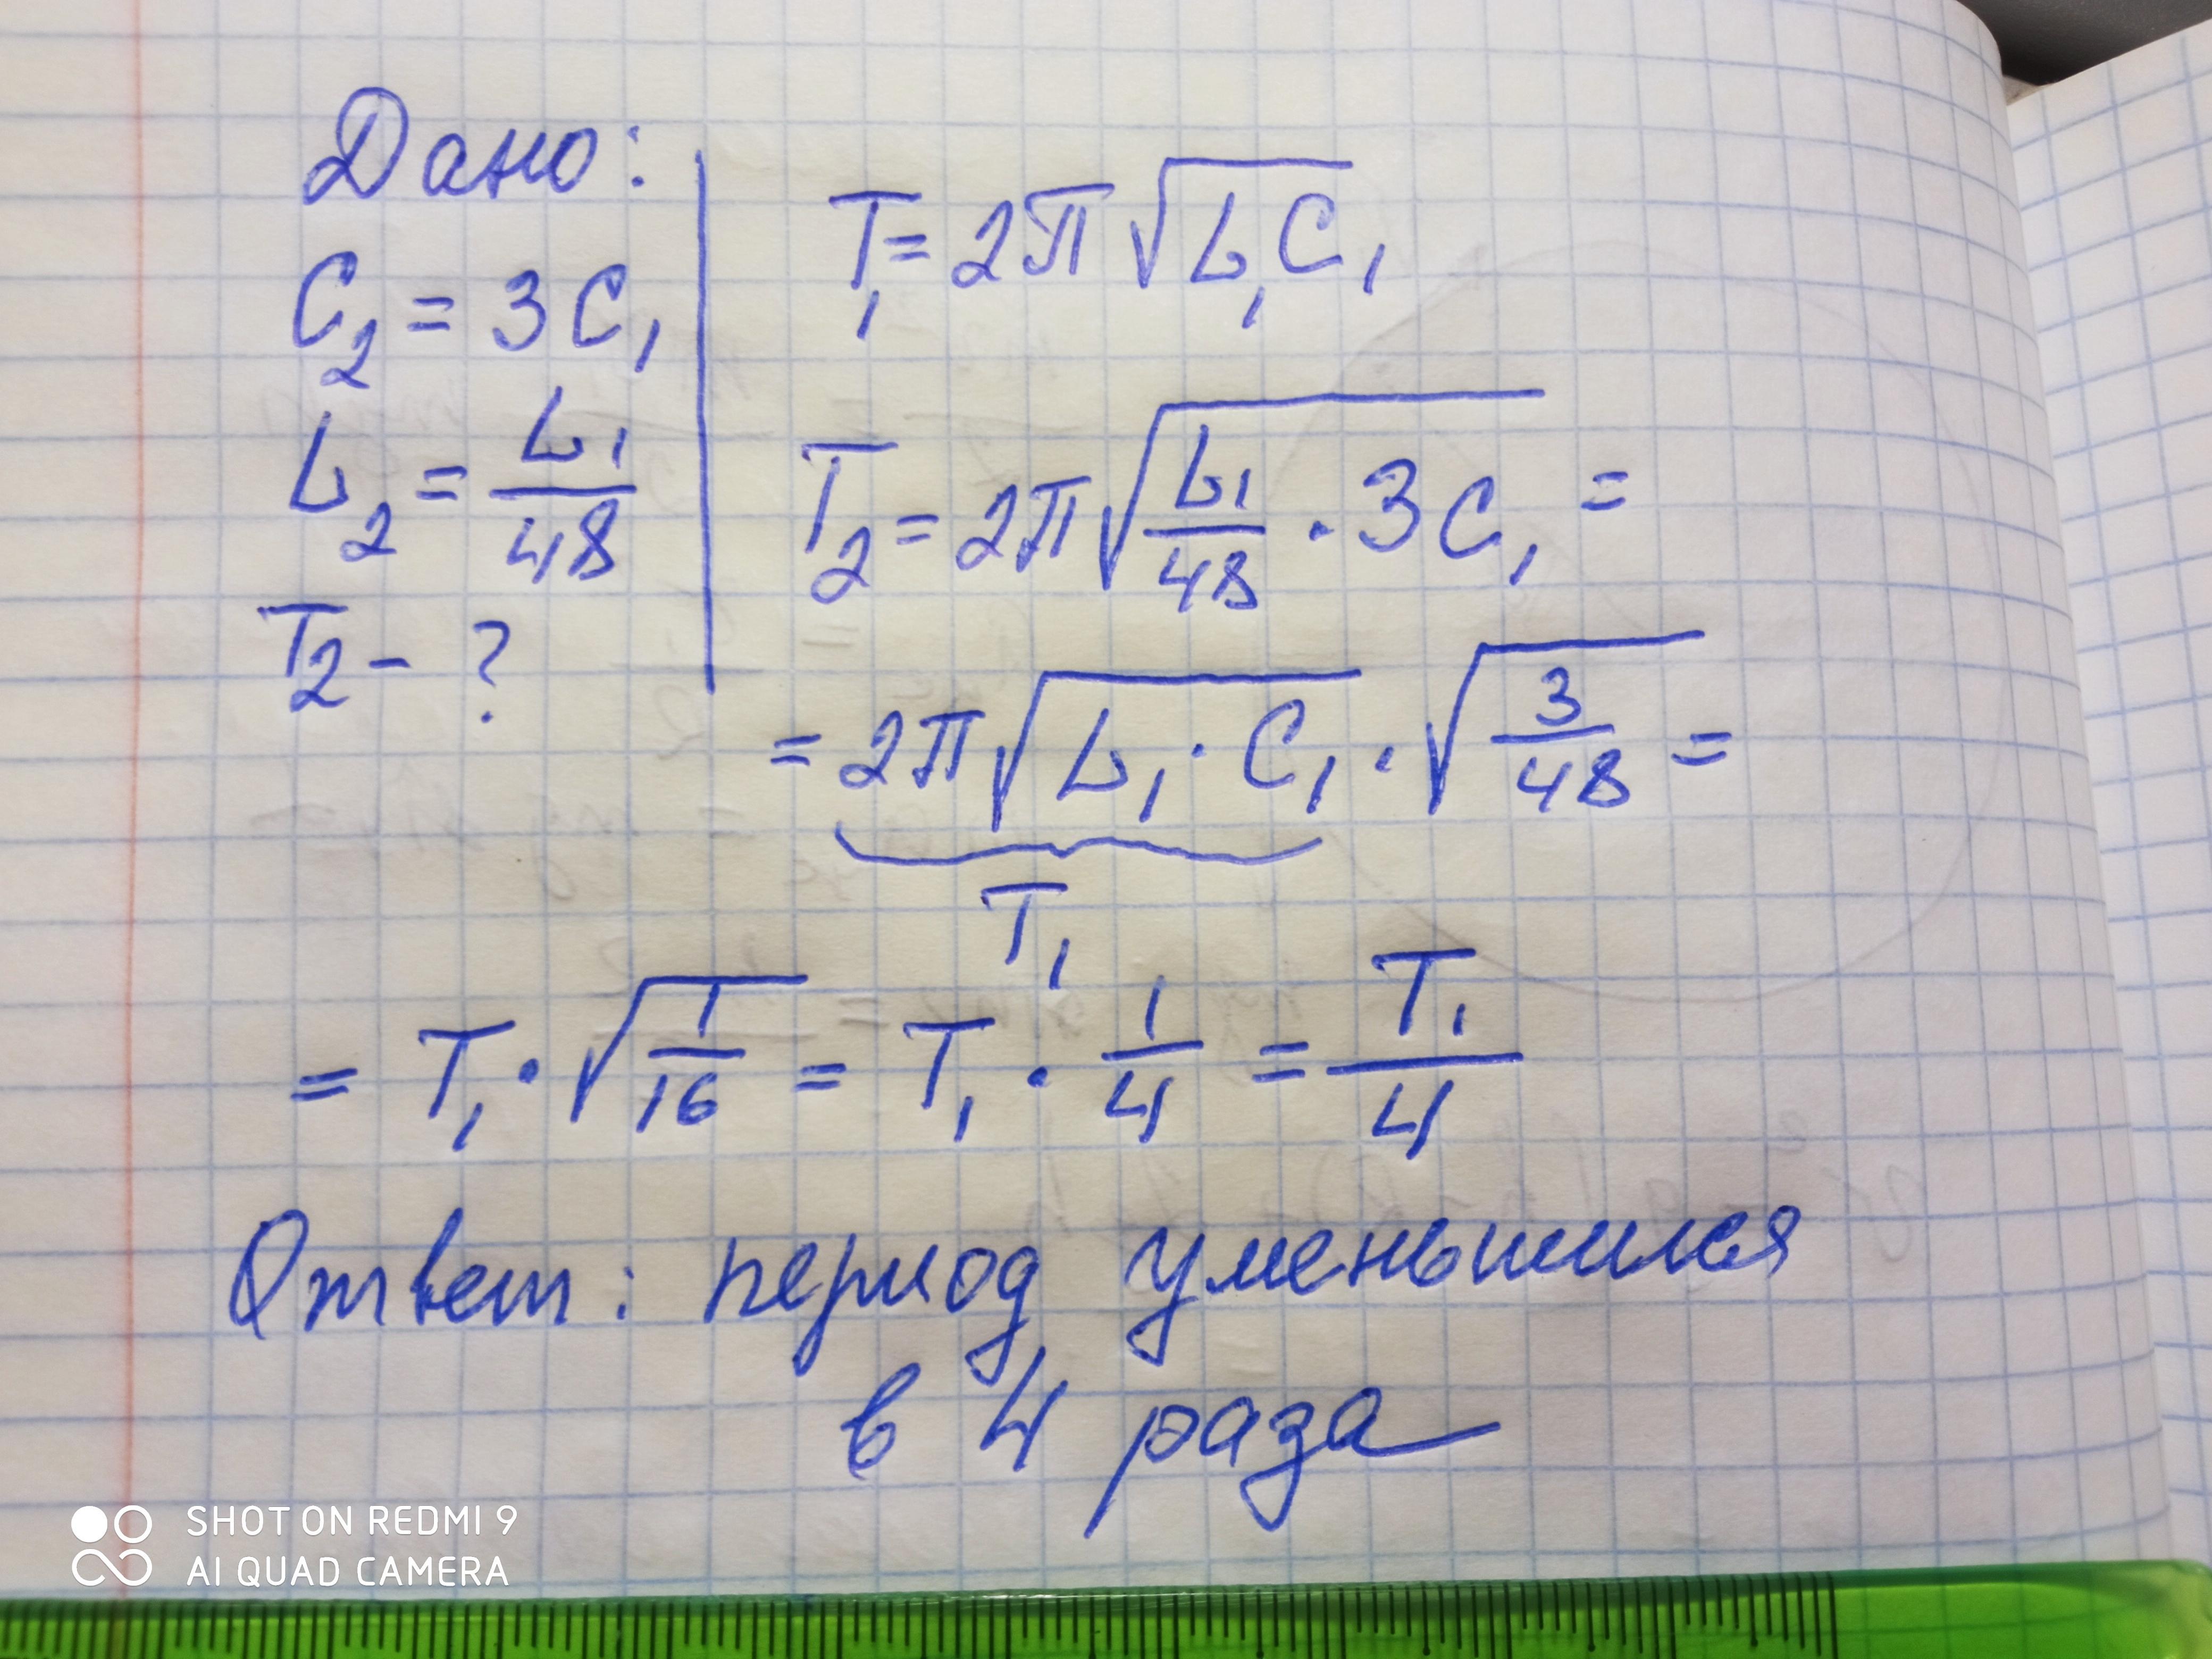 Дано:
C₂ = 3C₁
L₂ = L₁/48
T₂ - ?
T₁ = 2π√(L₁C₁)
T₂ = 2π√(L₁/48 · 3C₁) =
= 2π√(L₁ · C₁) · √(3/48) =
T₁
= T₁ · √(1/16) = T₁ · 1/4 = T₁/4
Ответ: период уменьшился
в 4 раза
SHOT ON REDMI 9
AI QUAD CAMERA